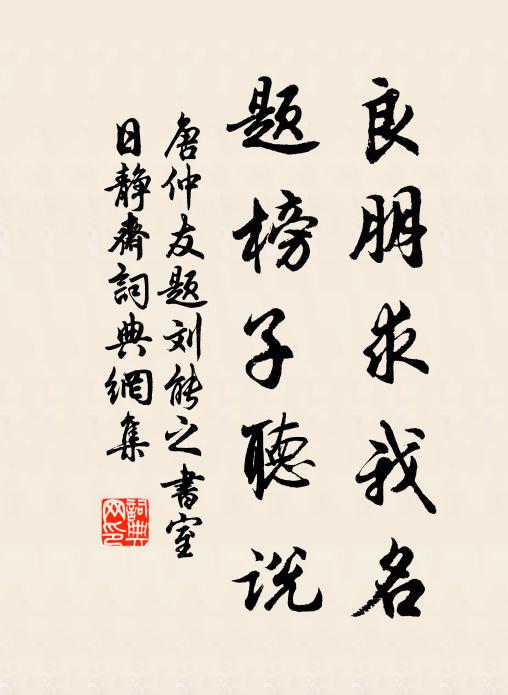 良朋求我名
题榜子聽説
唐仲友题刘能之書室
日静齋詞典網集
詞典网印